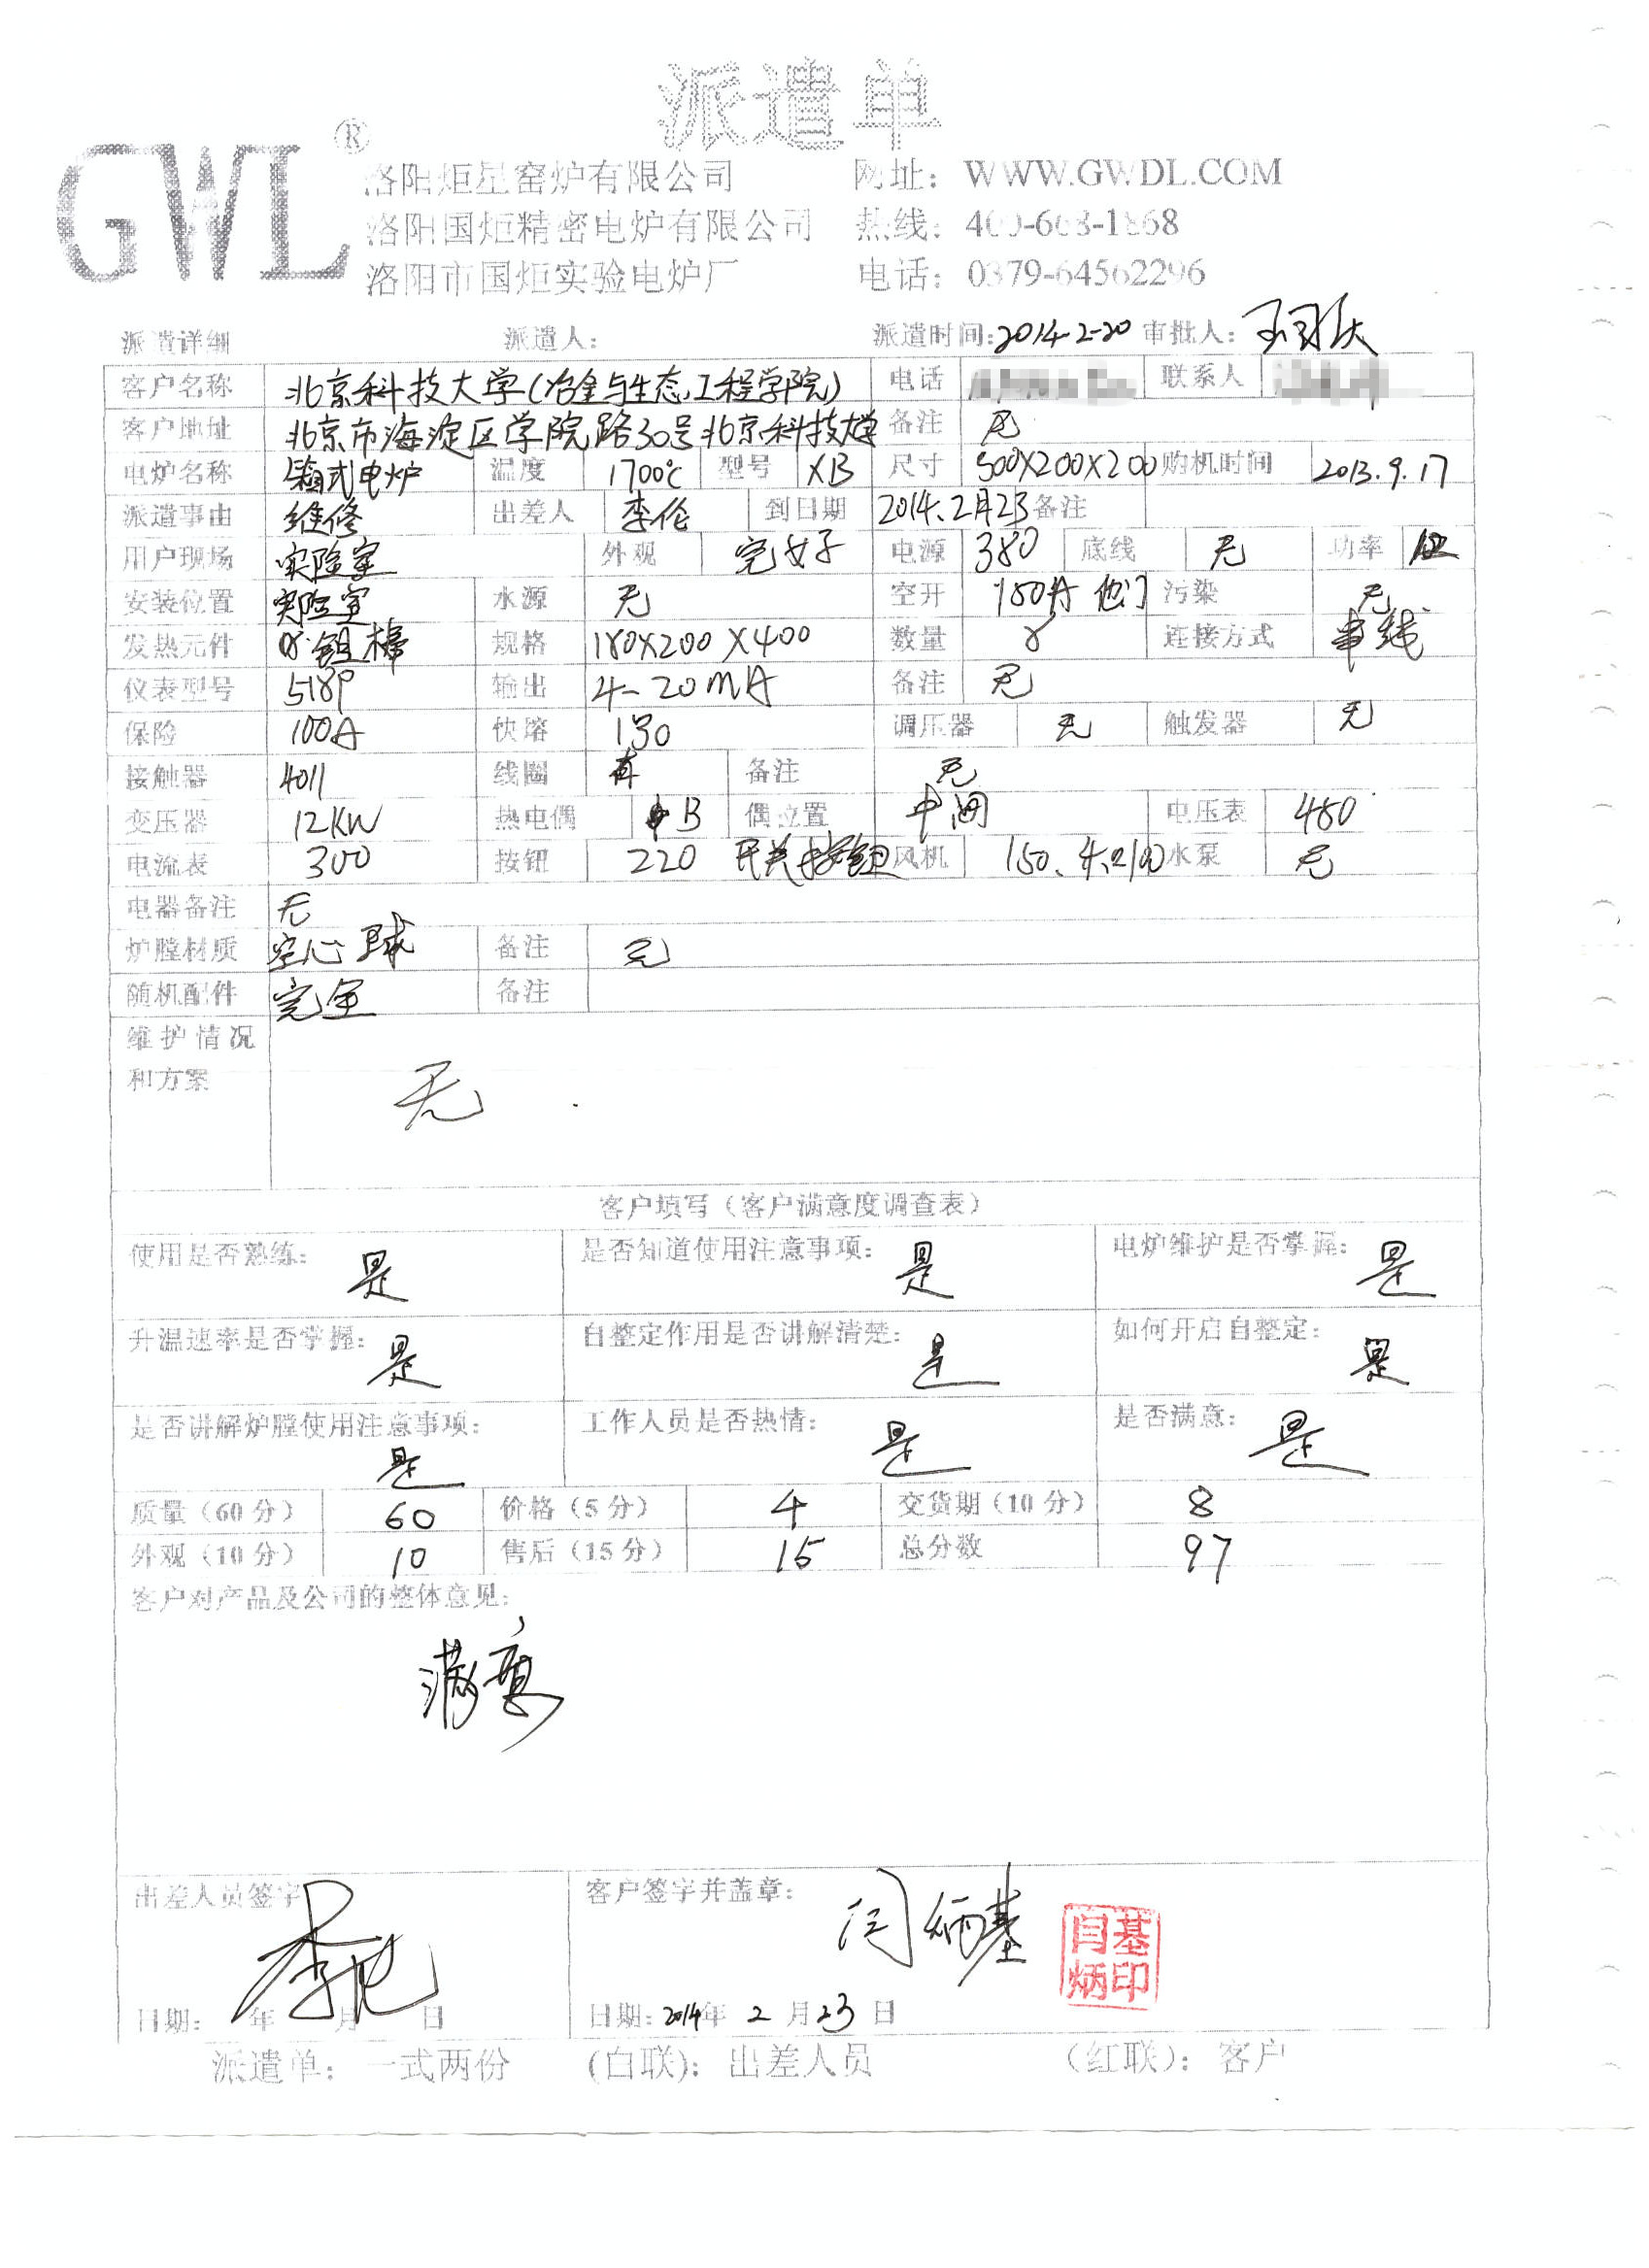 派遣单
GWL®
洛阳炬星窑炉有限公司 网址：WWW.GWDL.COM
洛阳国炬精密电炉有限公司 热线：400-668-1868
洛阳市国炬实验电炉厂 电话：0379-64562296
派遣详细 派遣人： 派遣时间：2014-2-20 审批人：
客户名称 北京科技大学(冶金与生态工程学院) 电话 联系人
客户地址 北京市海淀区学院路30号北京科技大学 备注 无
电炉名称 箱式电炉 温度 1700℃ 型号 XB 尺寸 500X200X200 购机时间 2013.9.17
派遣事由 维修 出差人 李伦 到日期 2014.2月23 备注
用户现场 实验室 外观 完好 电源 380 底线 无 功率
安装位置 实验室 水源 无 空开 150A 他门 污染 无
发热元件 硅钼棒 规格 180X200X400 数量 8 连接方式 串线
仪表型号 518P 输出 4-20mA 备注 无
保险 100A 快熔 150 调压器 无 触发器 无
接触器 4011 线圈 有 备注 无
变压器 12KW 热电偶 B 偶位置 中间 电压表 450
电流表 300 按钮 220 开关按钮 风机 水泵 无
电器备注 无
炉膛材质 空心球 备注 无
随机配件 完全 备注
维护情况
和方案 无
客户填写（客户满意度调查表）
使用是否熟练： 是 是否知道使用注意事项： 是 电炉维护是否掌握： 是
升温速率是否掌握： 是 自整定作用是否讲解清楚： 是 如何开启自整定： 是
是否讲解炉膛使用注意事项： 是 工作人员是否热情： 是 是否满意： 是
质量（60分） 60 价格（5分） 4 交货期（10分） 8
外观（10分） 10 售后（15分） 15 总分数 97
客户对产品及公司的整体意见：
满意
出差人员签字 客户签字并盖章： 闫炳基
闫炳基印
日期： 年 月 日 日期：2014年 2 月 23 日
派遣单：一式两份 (白联)：出差人员 （红联）：客户